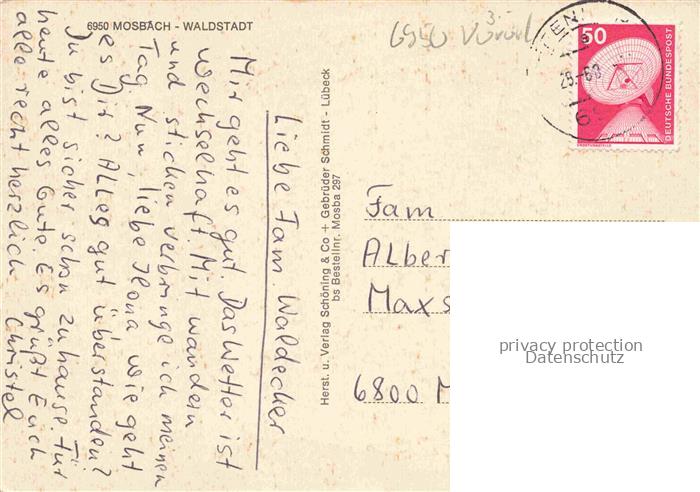 6950 MOSBACH - WALDSTADT
6950
50
DEUTSCHE BUNDESPOST
ERDEFUNKSTELLE
Liebe Fam. Waldecker
Mir geht es gut. Das Wetter ist
wechselhaft. Mit wandern
und sticken verbringe ich meinen
Tag. Nun, liebe Ilona wie geht
es Dir? Alles gut überstanden?
Du bist sicher schon zuhause. Für
heute alles Gute. Es grüßt Euch
alle recht herzlich Christel
Herst. u. Verlag Schöning & Co + Gebrüder Schmidt - Lübeck
bs Bestellnr. Mosba 297
Fam
Alber
Maxs
6800 M
privacy protection
Datenschutz